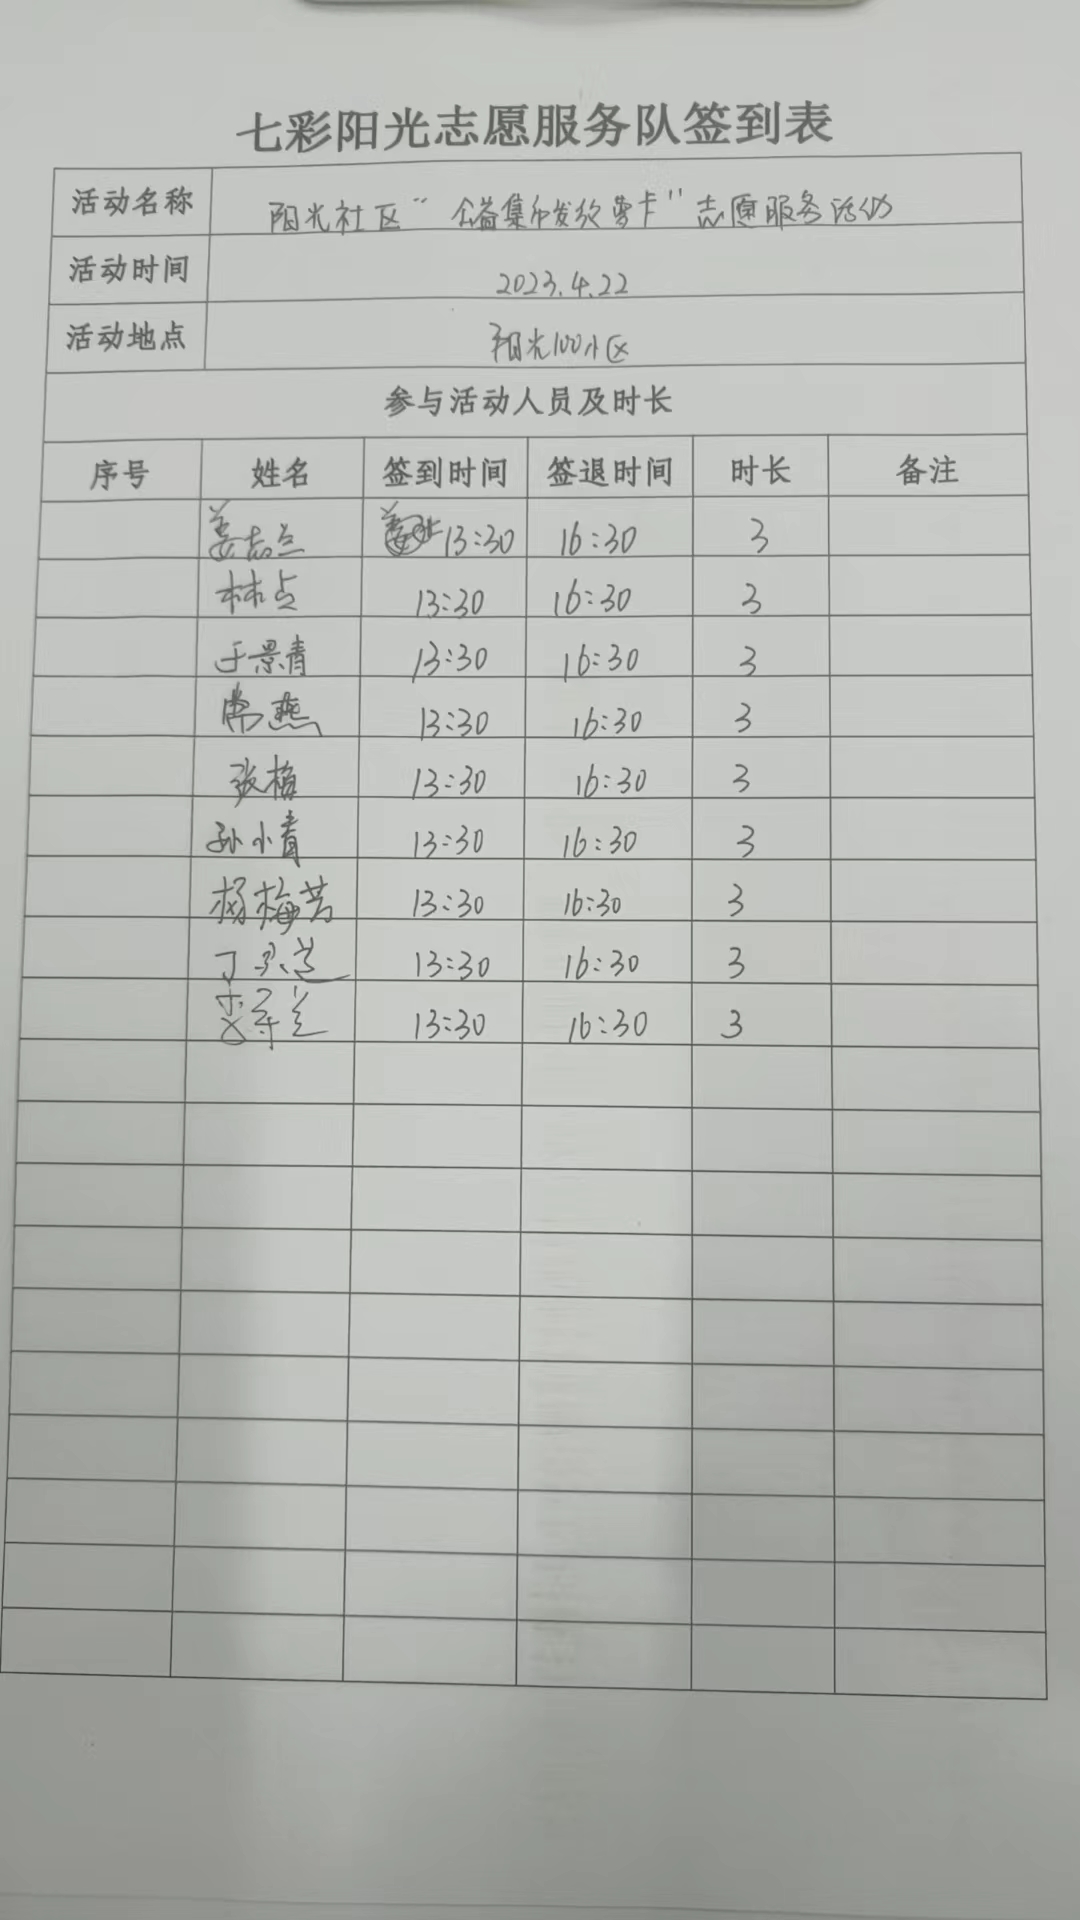 七彩阳光志愿服务队签到表
活动名称 阳光社区“公益集市发放 卡”志愿服务活动
活动时间 2023.4.22
活动地点 阳光100小区
参与活动人员及时长
序号 姓名 签到时间 签退时间 时长 备注
13:30 16:30 3
林点 13:30 16:30 3
于景青 13:30 16:30 3
常燕 13:30 16:30 3
张梅 13:30 16:30 3
孙小青 13:30 16:30 3
杨梅芳 13:30 16:30 3
丁 13:30 16:30 3
13:30 16:30 3